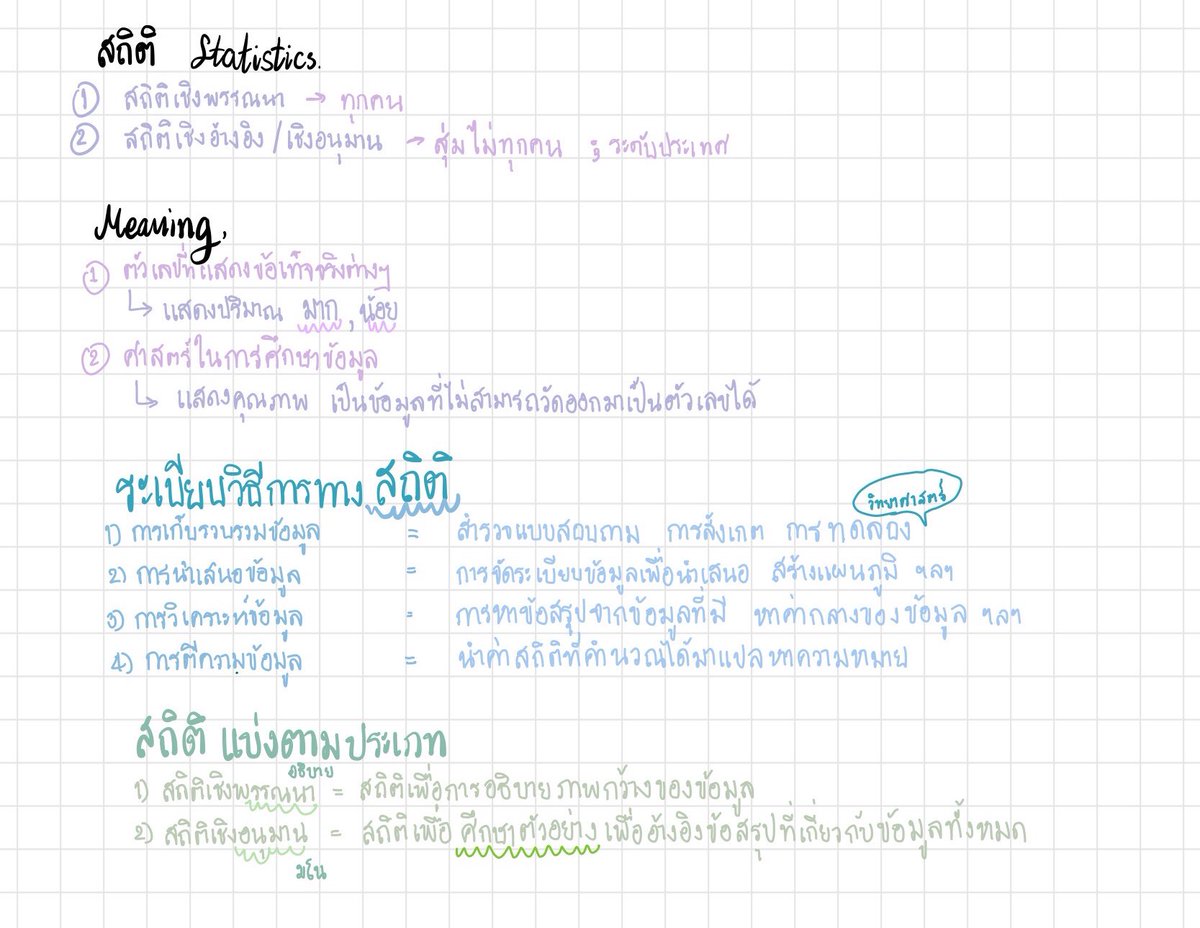 สถิติ Statistics.
① สถิติเชิงพรรณนา → ทุกคน
② สถิติเชิงอ้างอิง / เชิงอนุมาน → สุ่มไม่ทุกคน ; ระดับประเทศ
Meaning,
① ตัวเลขที่แสดงข้อเท็จจริงต่างๆ
↳ แสดงปริมาณ มาก, น้อย
② ศาสตร์ในการศึกษาข้อมูล
↳ แสดงคุณภาพ เป็นข้อมูลที่ไม่สามารถวัดออกมาเป็นตัวเลขได้
ระเบียบวิธีการทาง สถิติ
วิทยาศาสตร์
1) การเก็บรวบรวมข้อมูล = สำรวจแบบสอบถาม การสังเกต การทดลอง
2) การนำเสนอข้อมูล = การจัดระเบียบข้อมูลเพื่อนำเสนอ สร้างแผนภูมิ ฯลฯ
3) การวิเคราะห์ข้อมูล = การหาข้อสรุปจากข้อมูลที่มี หาค่ากลางของข้อมูล ฯลฯ
4) การตีความข้อมูล = นำค่าสถิติที่คำนวณได้มาแปลหาความหมาย
สถิติ แบ่งตามประเภท
อธิบาย
1) สถิติเชิงพรรณนา = สถิติเพื่อการอธิบายภาพกว้างของข้อมูล
2) สถิติเชิงอนุมาน = สถิติเพื่อ ศึกษาตัวอย่าง เพื่ออ้างอิงข้อสรุปที่เกี่ยวกับข้อมูลทั้งหมด
มโน